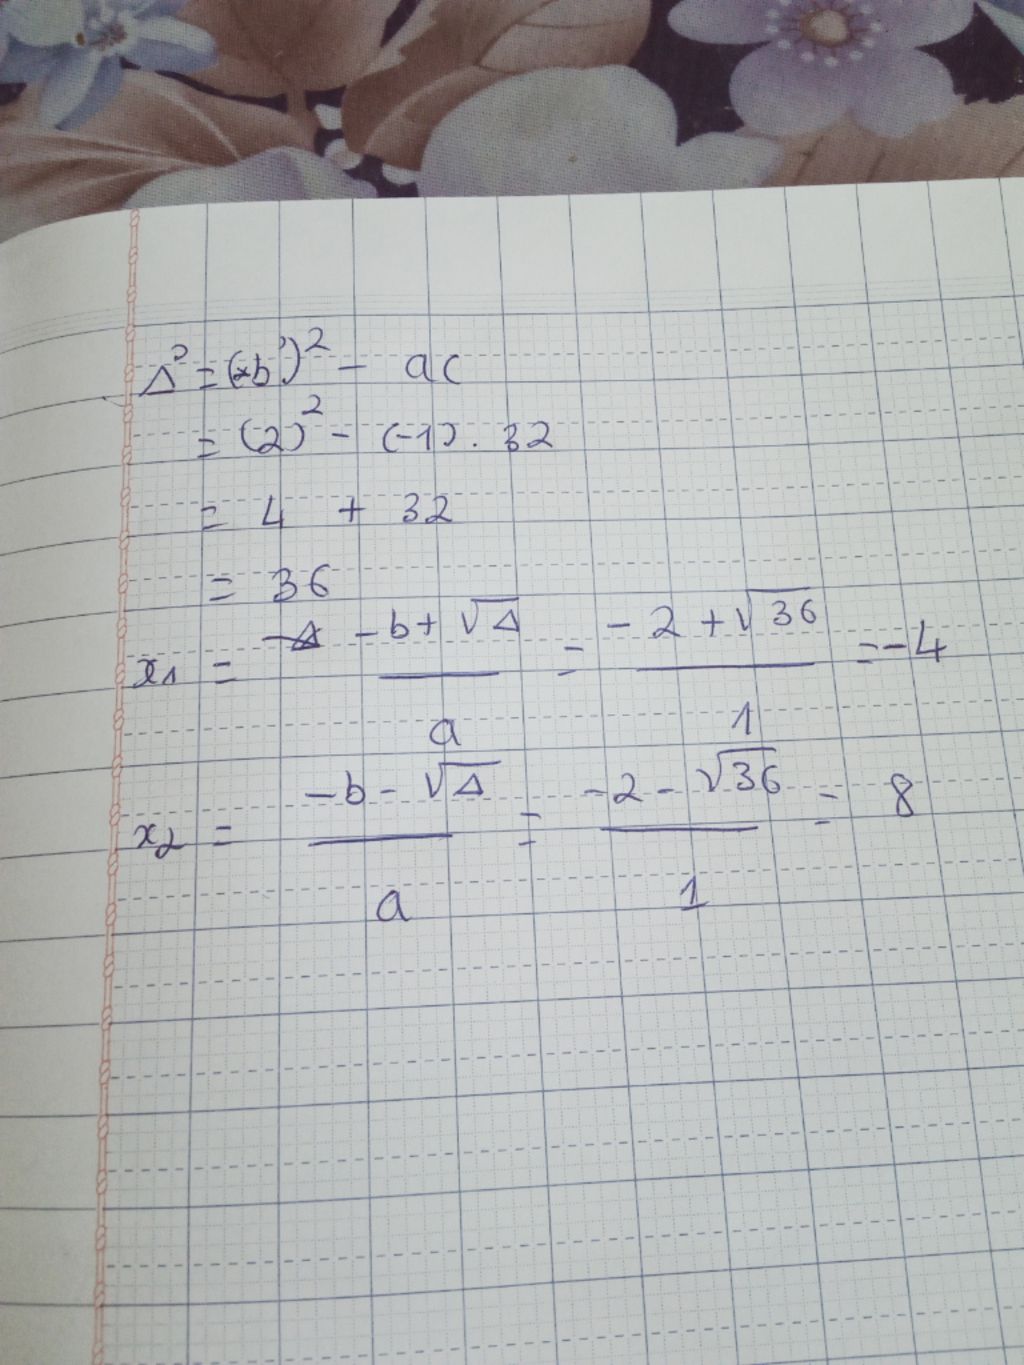 Δ' = (b')² - ac
= (2)² - (-1) . 32
= 4 + 32
= 36
x₁ = -b + √Δ / a = -2 + √36 / 1 = -4
x₂ = -b - √Δ / a = -2 - √36 / 1 = 8